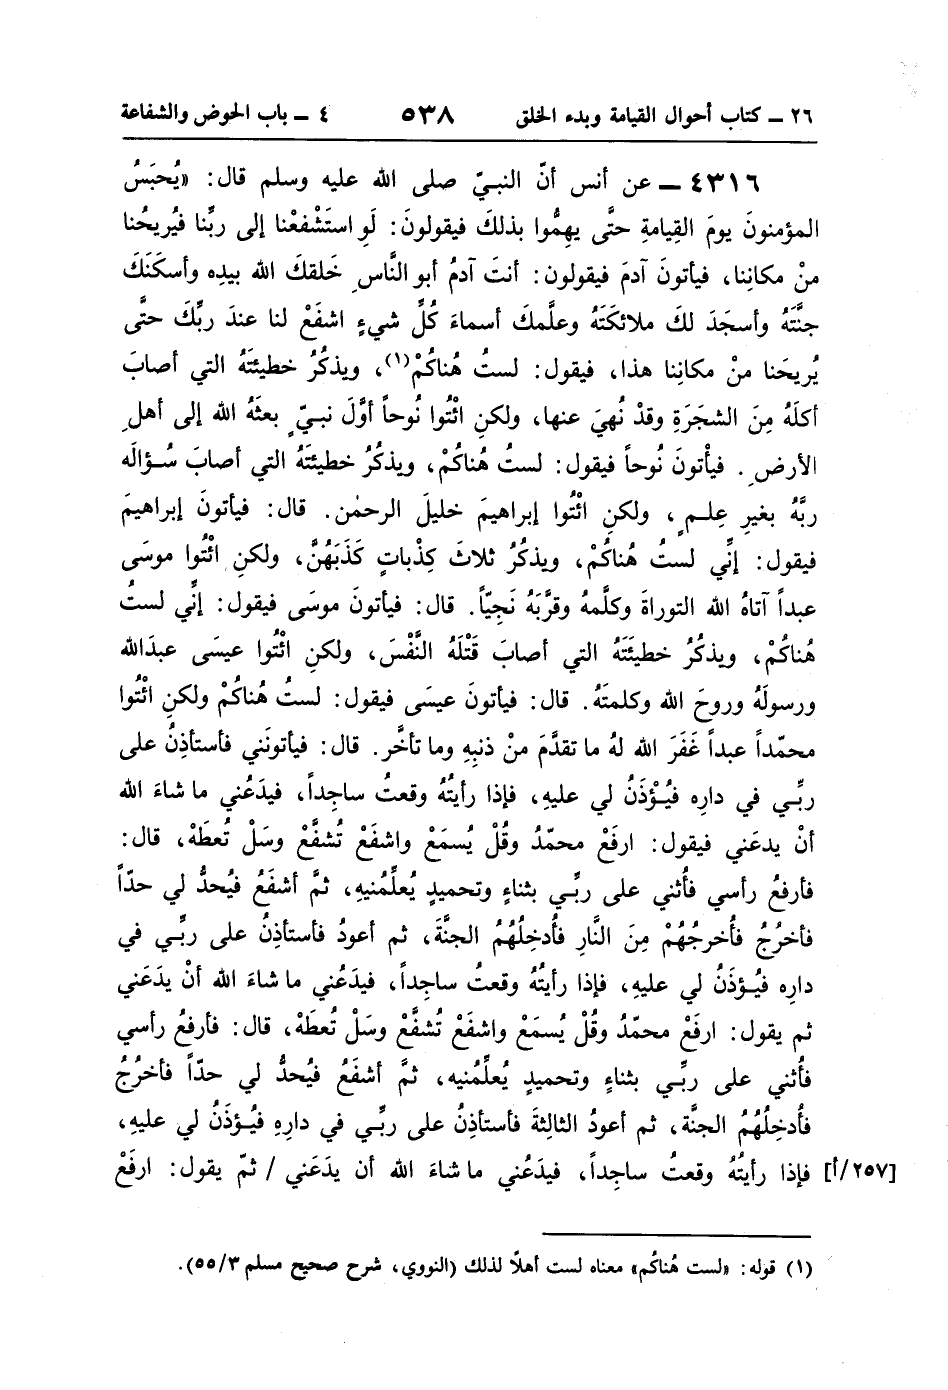 ٢٦ ـ كتاب أحوال القيامة وبدء الخلق ٥٣٨ ٤ ـ باب الحوض والشفاعة
٤٣١٦ ـ عن أنس أنّ النبيّ صلى الله عليه وسلم قال: «يُحبَسُ
المؤمنونَ يومَ القِيامةِ حتَّى يهِمُّوا بذلكَ فيقولونَ: لَوِ استَشْفعْنا إلى ربِّنا فيُريحُنا
منْ مكانِنا، فيأتونَ آدمَ فيقولون: أنتَ آدمُ أبو النَّاسِ خَلقكَ الله بيدِه وأسكَنَكَ
جنَّتَهُ وأسجَدَ لكَ ملائكَتَهُ وعلَّمكَ أسماءَ كُلِّ شيءٍ اشفَعْ لنا عندَ ربِّكَ حتَّى
يُريحَنا منْ مكانِنا هذا، فيقول: لستُ هُناكُمْ(١)، ويذكُرُ خطيئتَهُ التي أصابَ
أكلَهُ مِنَ الشجَرَةِ وقدْ نُهيَ عنها، ولكنِ ائْتُوا نُوحاً أوَّلَ نبيٍّ بعثَهُ الله إلى أهلِ
الأرضِ. فيأْتونَ نُوحاً فيقول: لستُ هُناكُمْ، ويذكُرُ خطيئتَهُ التي أصابَ سُؤالَه
ربَّهُ بغيرِ عِلمٍ، ولكنِ ائْتُوا إبراهيمَ خليلَ الرحمٰن. قال: فيأتونَ إبراهيمَ
فيقول: إنِّي لستُ هُناكُمْ، ويذكُرُ ثلاثَ كِذْباتٍ كَذَبَهُنَّ، ولكنِ ائْتُوا موسَى
عبداً آتاهُ الله التوراةَ وكلَّمهُ وقرَّبَهُ نَجِيّاً. قال: فيأتونَ موسَى فيقول: إنِّي لستُ
هُناكُمْ، ويذكُرُ خطيئَتَهُ التي أصابَ قَتْلَهُ النَّفْسَ، ولكنِ ائْتُوا عيسَى عبدَالله
ورسولَهُ وروحَ الله وكلمتَهُ. قال: فيأتونَ عيسَى فيقول: لستُ هُناكُمْ ولكنِ ائْتُوا
محمّداً عبداً غَفَرَ الله لهُ ما تقدَّمَ منْ ذنبِهِ وما تأخَّر. قال: فيأتونَني فأستأذِنُ على
ربِّي في دارِه فيُؤْذَنُ لي عليهِ، فإذا رأيتُهُ وقعتُ ساجِداً، فيدَعُني ما شاءَ الله
أنْ يدعَني فيقول: ارفَعْ محمّدُ وقُلْ يُسمَعْ واشفَعْ تُشفَّعْ وسَلْ تُعطَهْ، قال:
فأرفعُ رأسي فأُثني على ربِّي بثناءٍ وتحميدٍ يُعلِّمُنيهِ، ثمَّ أشفَعُ فيُحدُّ لي حدّاً
فأخرُجُ فأُخرِجُهُمْ مِنَ النَّارِ فأُدخِلُهُمُ الجنَّةَ، ثم أعودُ فأستأذِنُ على ربِّي في
دارِه فيُؤذَنُ لي عليهِ، فإذا رأيتُهُ وقعتُ ساجِداً، فيدَعُني ما شاءَ الله أنْ يدَعَني
ثم يقول: ارفَعْ محمّدُ وقُلْ يُسمَعْ واشفَعْ تُشفَّعْ وسَلْ تُعطَهْ، قال: فأرفعُ رأسي
فأُثني على ربِّي بثناءٍ وتحميدٍ يُعلِّمُنيه، ثمَّ أشفَعُ فيُحدُّ لي حدّاً فأخرُجُ
فأُدخِلُهُمُ الجنَّة، ثم أعودُ الثالثةَ فأستأذِنُ على ربِّي في دارِهِ فيُؤذَنُ لي عليهِ،
[٢٥٧/أ] فإذا رأيتُهُ وقعتُ ساجِداً، فيدَعُني ما شاءَ الله أن يدَعَني / ثمّ يقول: ارفَعْ
(١) قوله: «لست هُناكُم» معناه لست أهلًا لذلك (النووي، شرح صحيح مسلم ٥٥/٣).